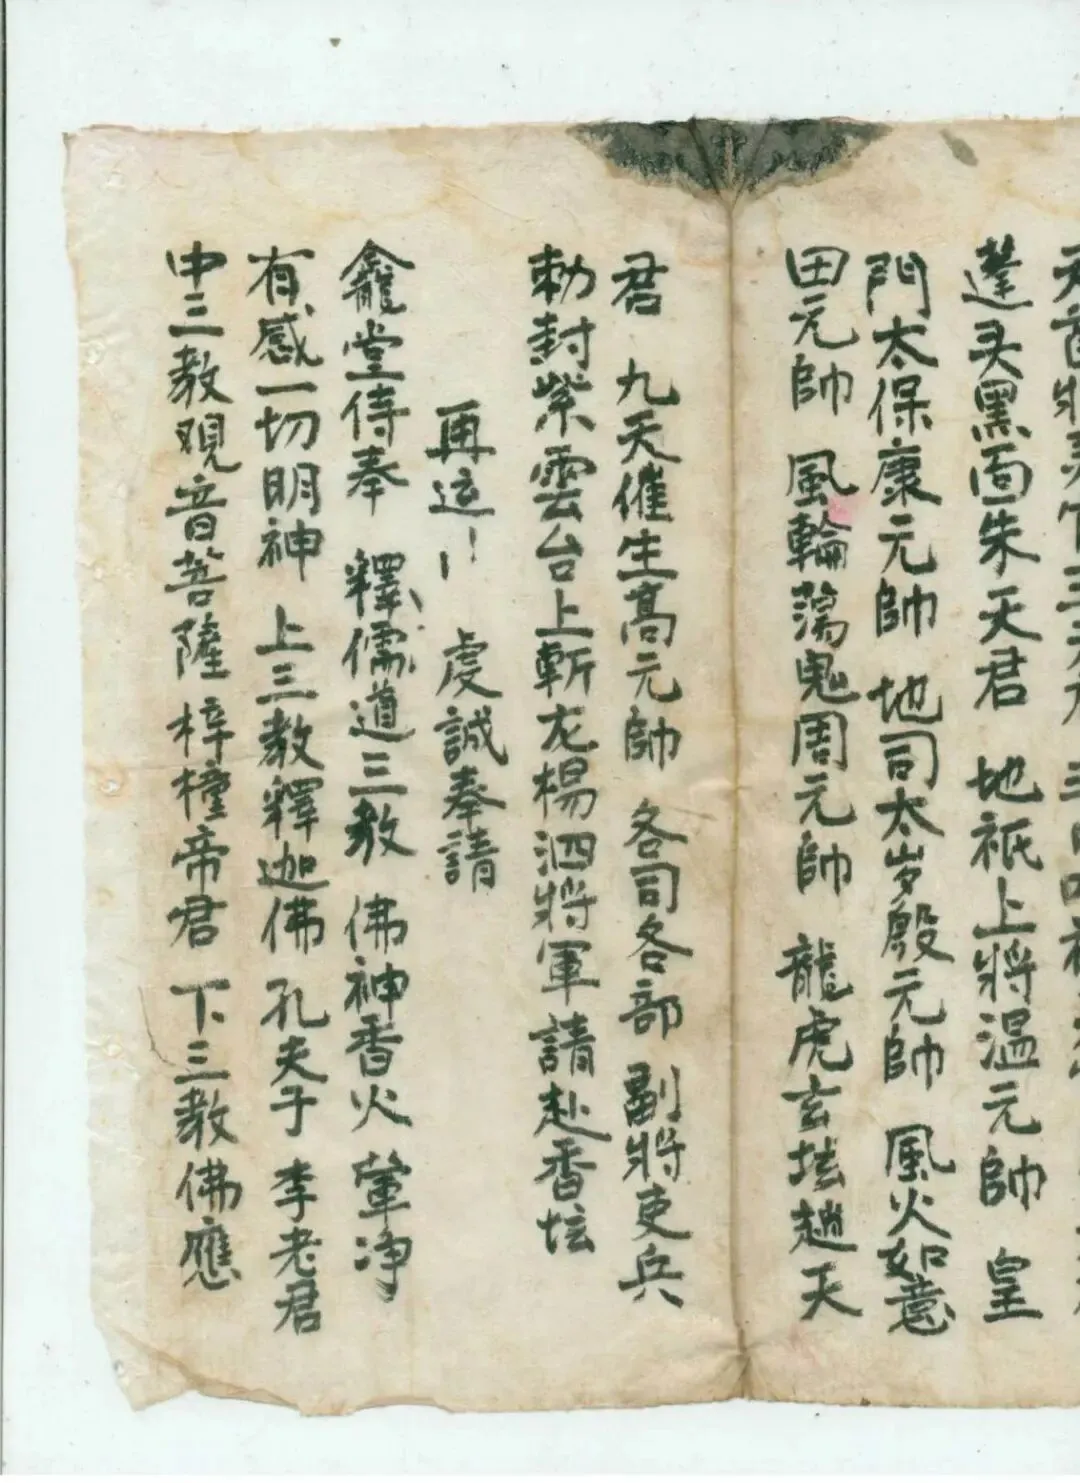 蓬头黑面朱天君 地祇上將温元帥 皇
門太保康元帥 地司太岁殷元帥 風火如意
田元帥 風輪蕩鬼周元帥 龍虎玄坛趙天
君 九天催生高元帥 各司各部 副將吏兵
勅封紫雲台上斬龙楊泗將軍請赴香坛
再运 虔誠奉請
龕堂侍奉 釋儒道三教 佛神香火 葷净
有感一切明神 上三教釋迦佛 孔夫子 李老君
中三教观音菩薩 梓橦帝君 下三教佛應